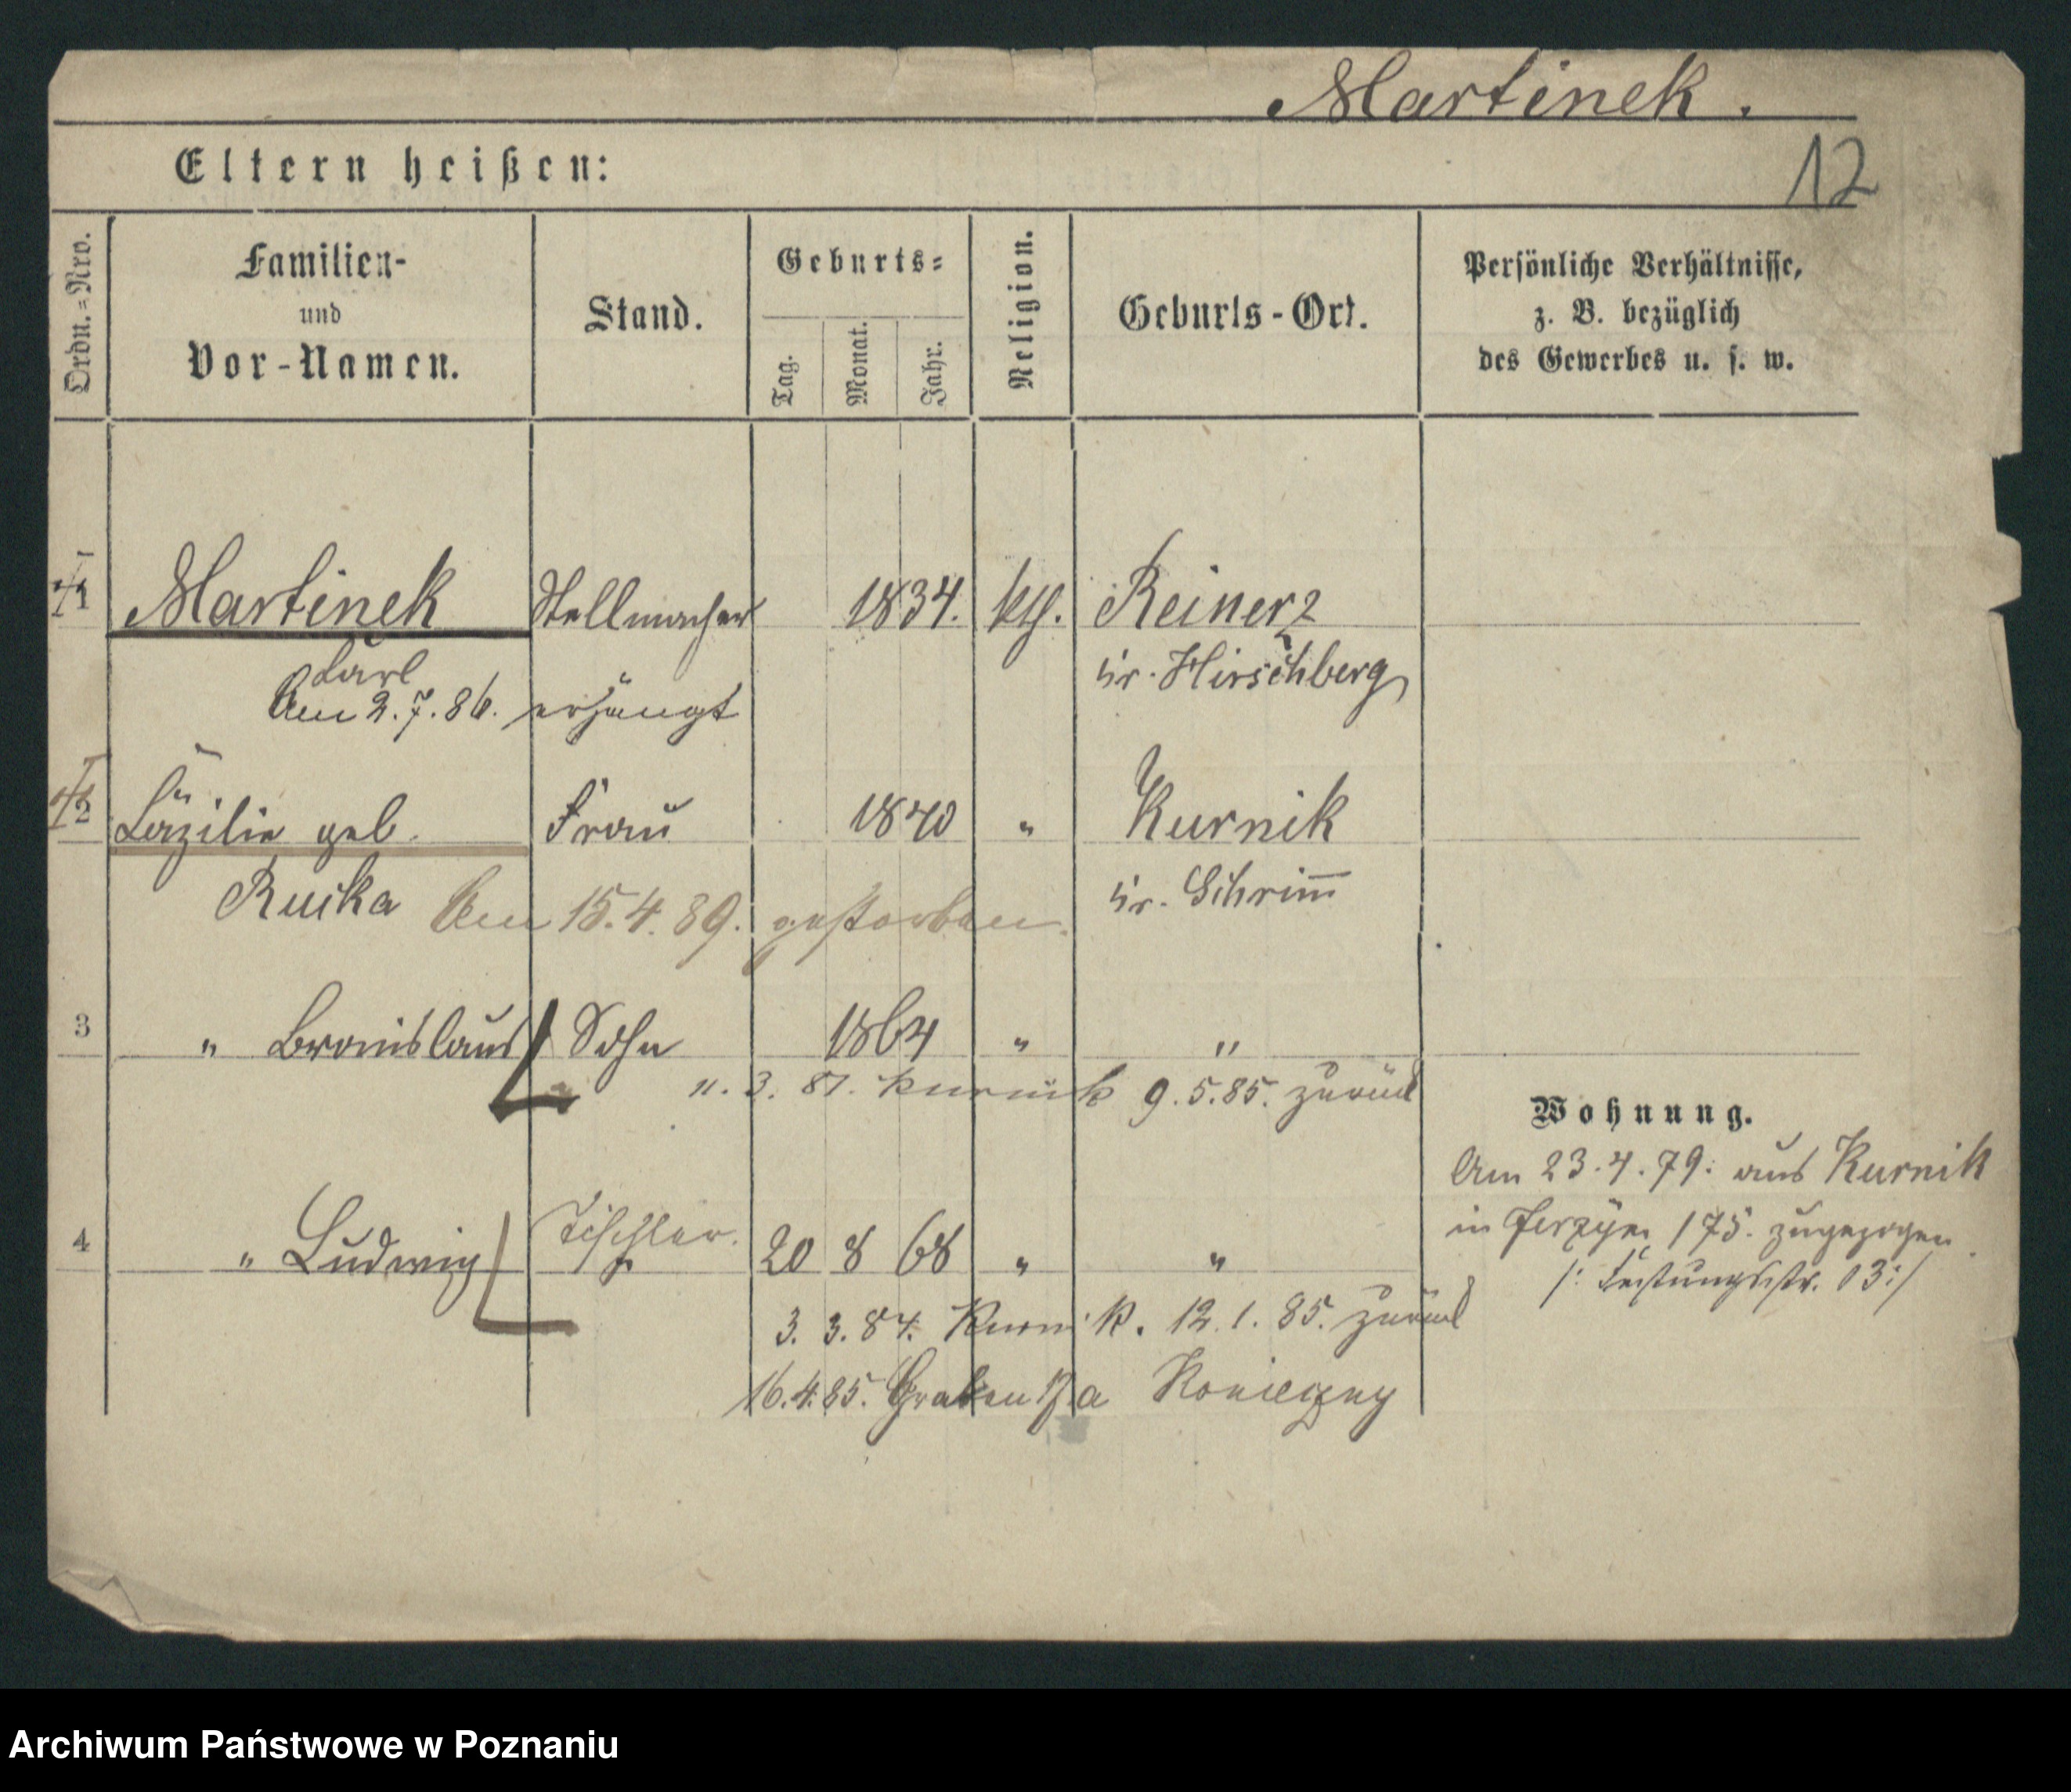 Martinek.
12
Eltern heißen:
Ordn.=Nro.
Familien-
und
Vor-Namen.
Stand.
Geburts=
Tag.
Monat.
Jahr.
Religion.
Geburts-Ort.
Persönliche Verhältnisse,
z. B. bezüglich
des Gewerbes u. s. w.
1 Martinek Stellmacher 1834. kth. Reinerz
Carl Kr. Hirschberg
Am 2.7.86. erhängt
2 Cäzilie geb. Frau 1840 " Kurnik
Ruska Kr. Schrim̅
Am 15.4.89. gestorben.
3 " Bronislaus Sohn 1864 " "
11. 3. 81. Kurnik 9.5.85. zurück
Wohnung.
Am 23.4.79. aus Kurnik
in Jerzyce 175. zugezogen
/: Festungsstr. 13 :/
4 " Ludwig Tischler. 20 8 68 " "
3. 3. 84. Kurnik. 12.1.85. zurück
16.4.85. Graben a Konieczny
Archiwum Państwowe w Poznaniu